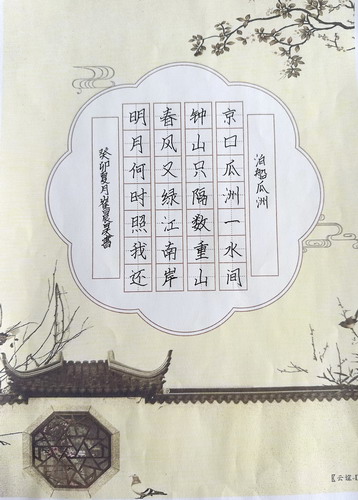 泊船瓜洲
京口瓜洲一水间
钟山只隔数重山
春风又绿江南岸
明月何时照我还
癸卯夏月崔晨昊书